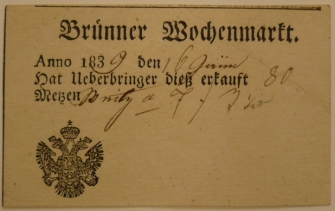 Brünner Wochenmarkt.
Anno 1839 den 16
Hat Ueberbringer dieß erkauft 80
Metzen a 7 f 3